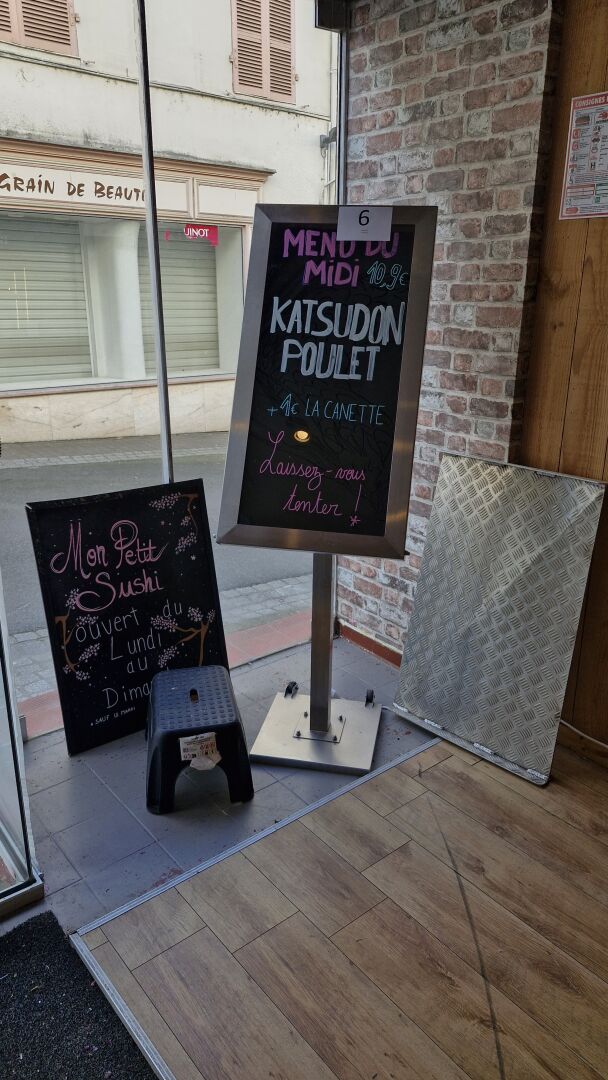 GRAIN DE BEAUTÉ
UINOT
6
MENU DU
MIDI 10,9€
KATSUDON
POULET
+ 1€ LA CANETTE
Laissez-vous
tenter !
Mon Petit
Sushi
ouvert du
Lundi
au
Dima
* SAUF LE MARDI
CONSIGNES